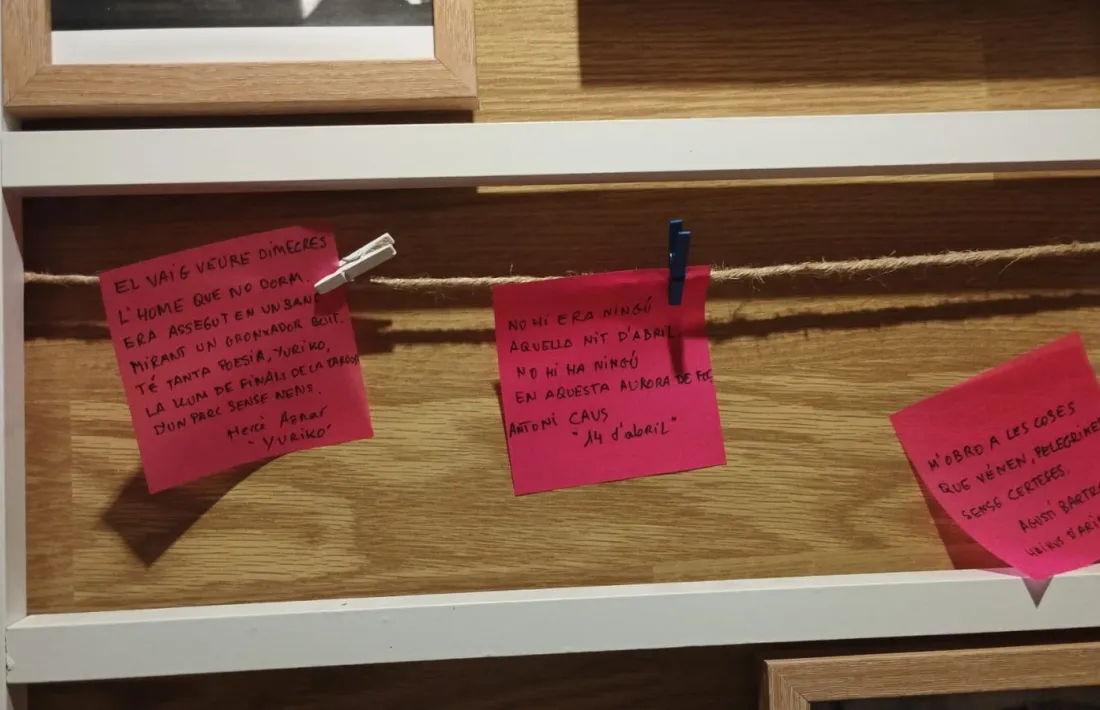 EL VAIG VEURE DIMECRES
L'HOME QUE NO DORM.
ERA ASSEGUT EN UN BANC
MIRANT UN GRONXADOR BUIT.
TÉ TANTA POESIA, YURIKO,
LA LLUM DE FINALS DE LA TARDOR
D'UN PARC SENSE NENS.
Mercè Aznar
"YURIKO"
NO HI ERA NINGÚ
AQUELLA NIT D'ABRIL
NO HI HA NINGÚ
EN AQUESTA AURORA DE FOC
ANTONI CAUS
"14 d'abril"
M'OBRO A LES COSES
QUE VÉNEN, PELEGRINES
SENSE CERTESES.
AGUSTÍ BARTRA